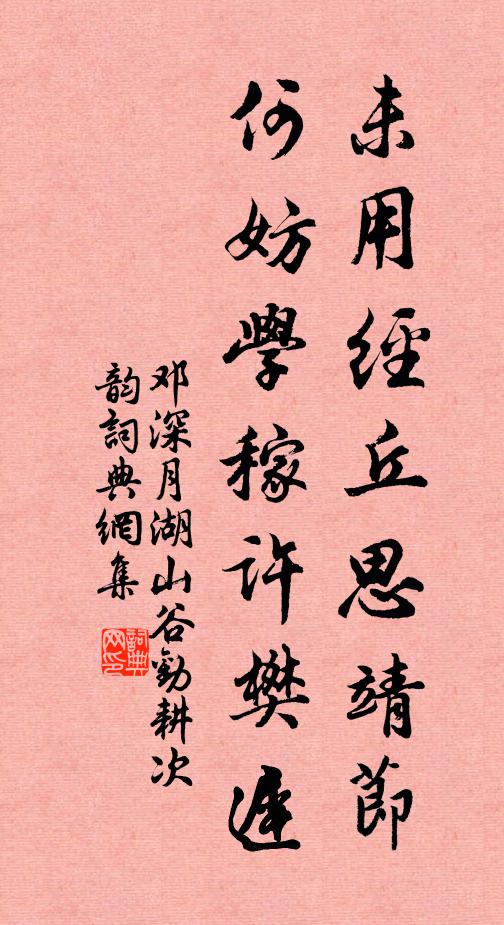 未用經丘思靖節
何妨學稼許樊遲
邓深月湖山谷勸耕次
韵詞典網集
詞典
网印